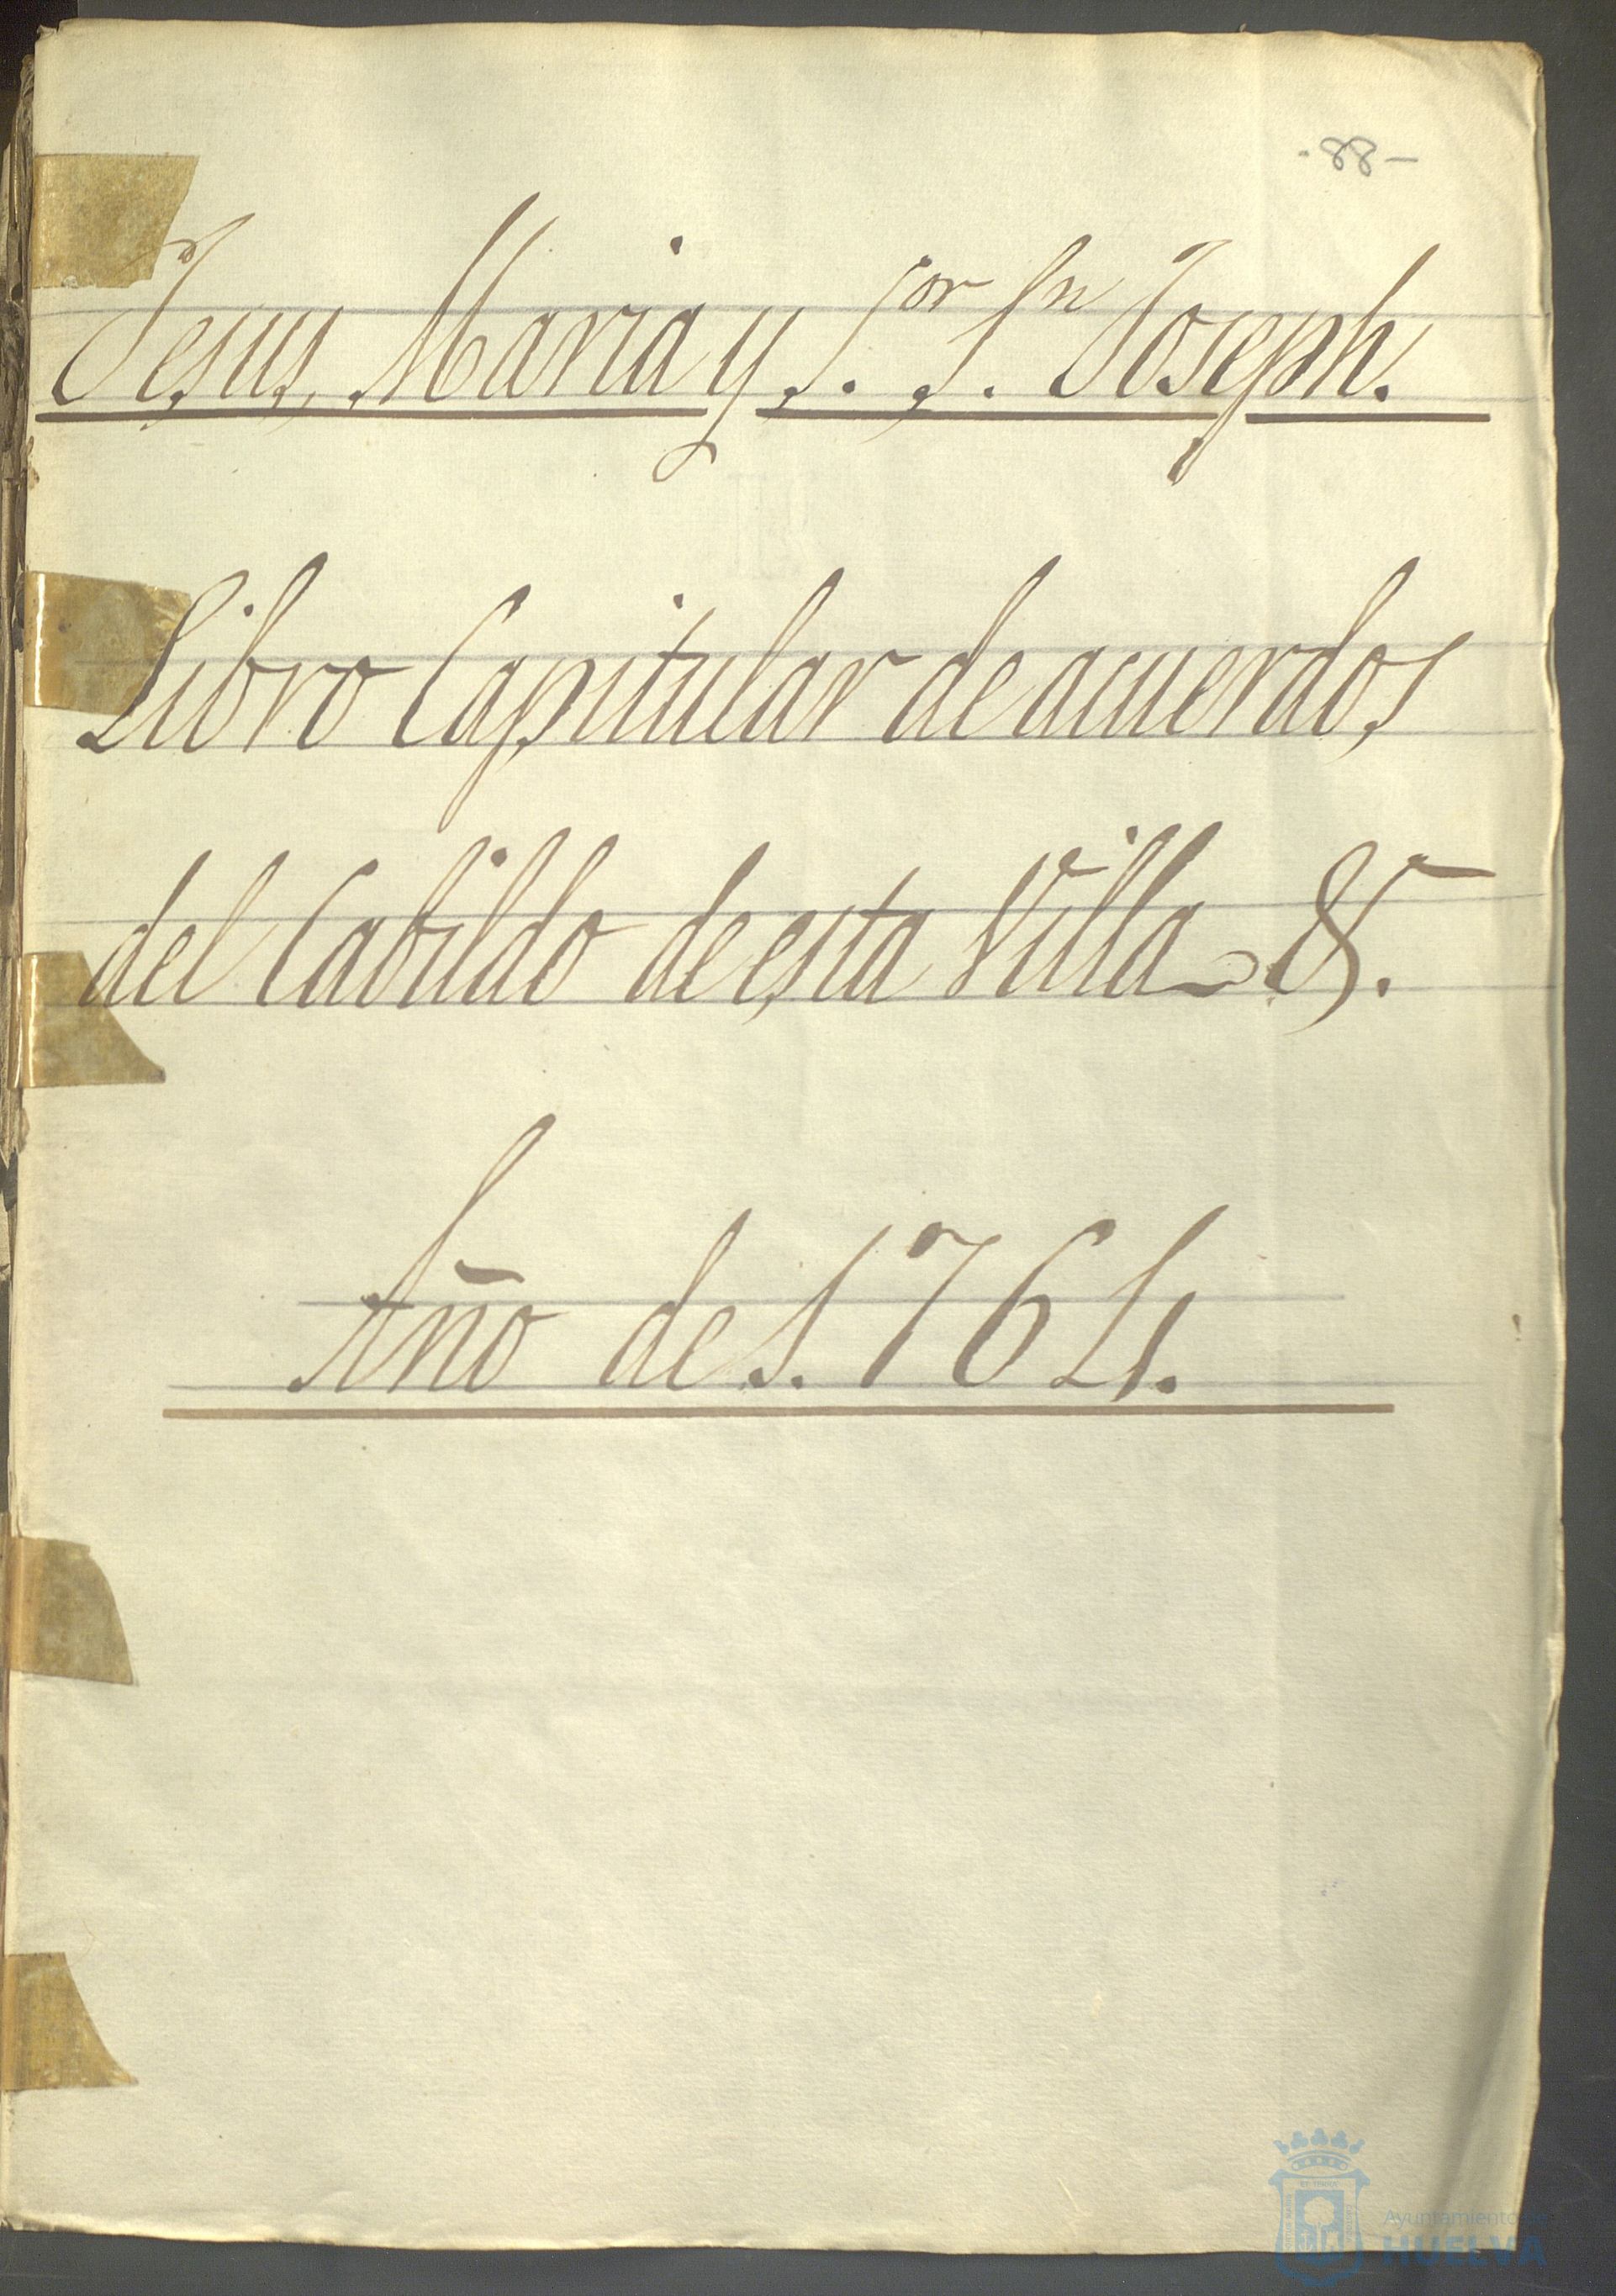 -88-
Jesus, Maria y S.or S.n Joseph.
Libro Capitular de acuerdos
del Cabildo de esta Villa &.
Año de 1764.
Ayuntamiento de
HUELVA